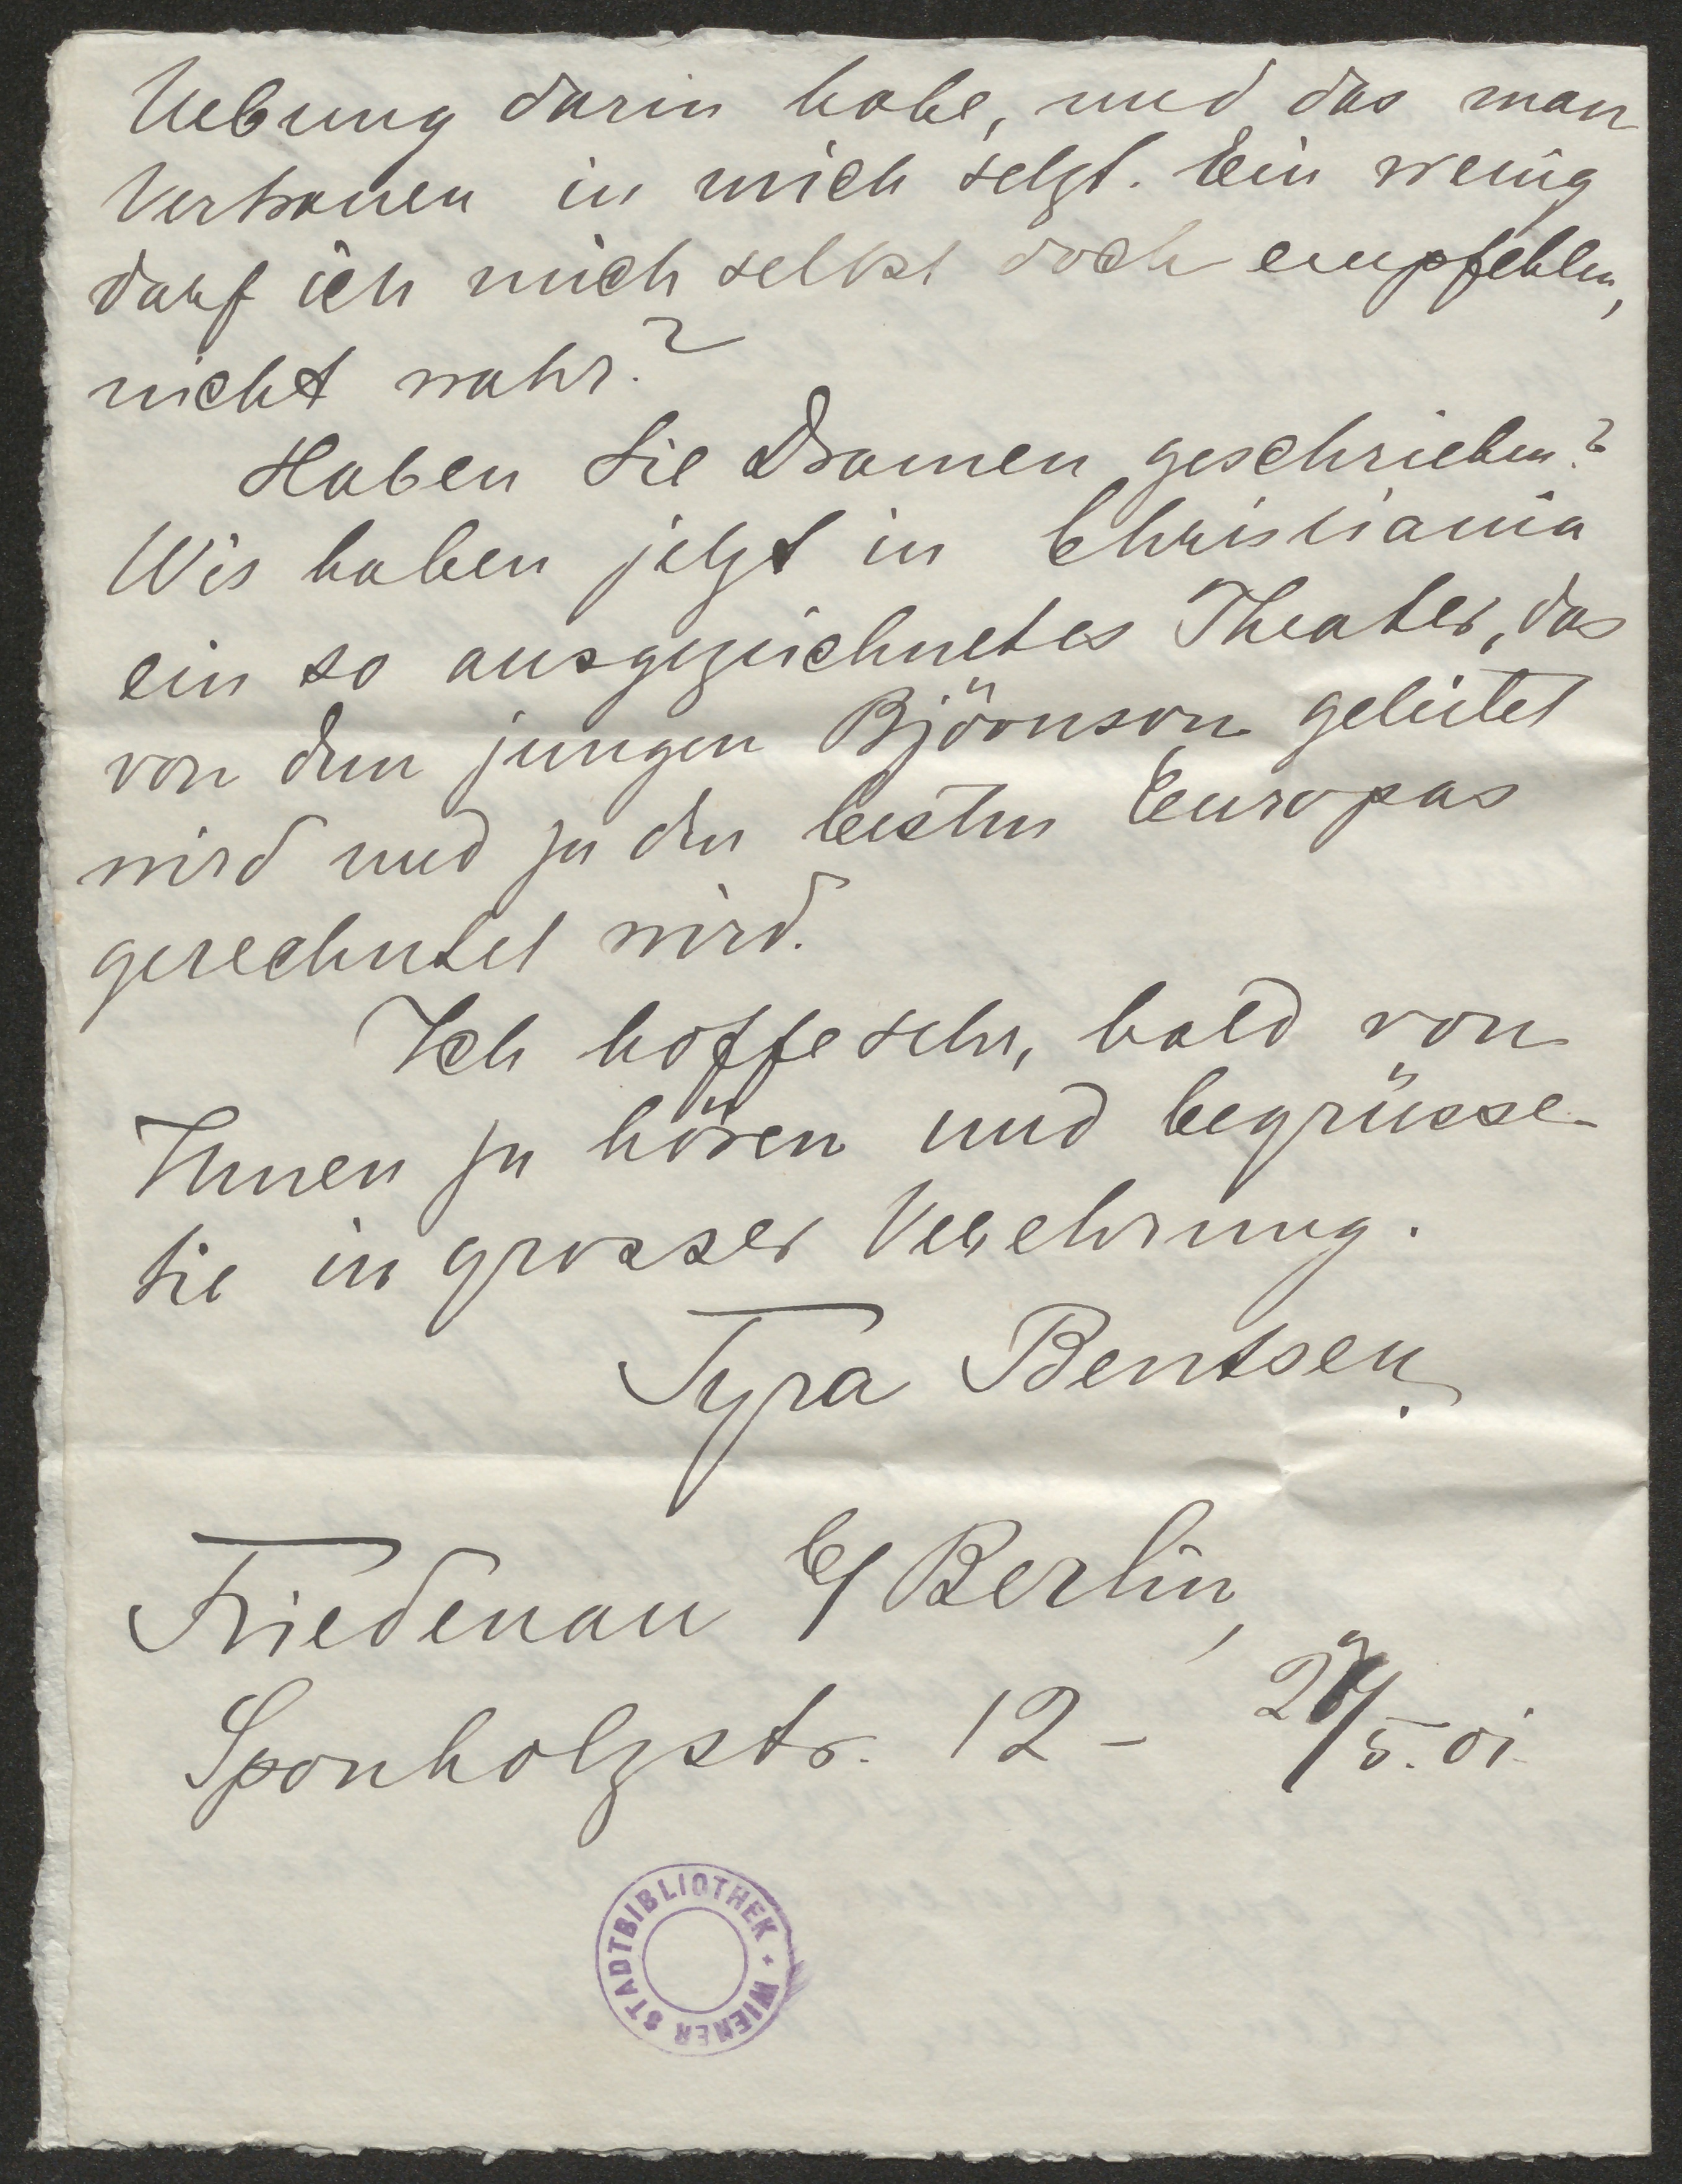 Uebung darin habe, und das man
Vertrauen in mich setzt. Ein wenig
darf ich mich selbst doch empfehlen,
nicht wahr?
Haben Sie Dramen geschrieben?
Wir haben jetzt in Christiania
ein so ausgezeichnetes Theater, das
von dem jungen Björnson geleitet
wird und zu den besten Europas
gerechntet wird.
Ich hoffe sehr, bald von
Ihnen zu hören und begrüsse
Sie in grosser Verehrung.
Tyra Bentsen.
Friedenau b/ Berlin,
Sponholzstr. 12 - /5. 01.
WIENER STADTBIBLIOTHEK